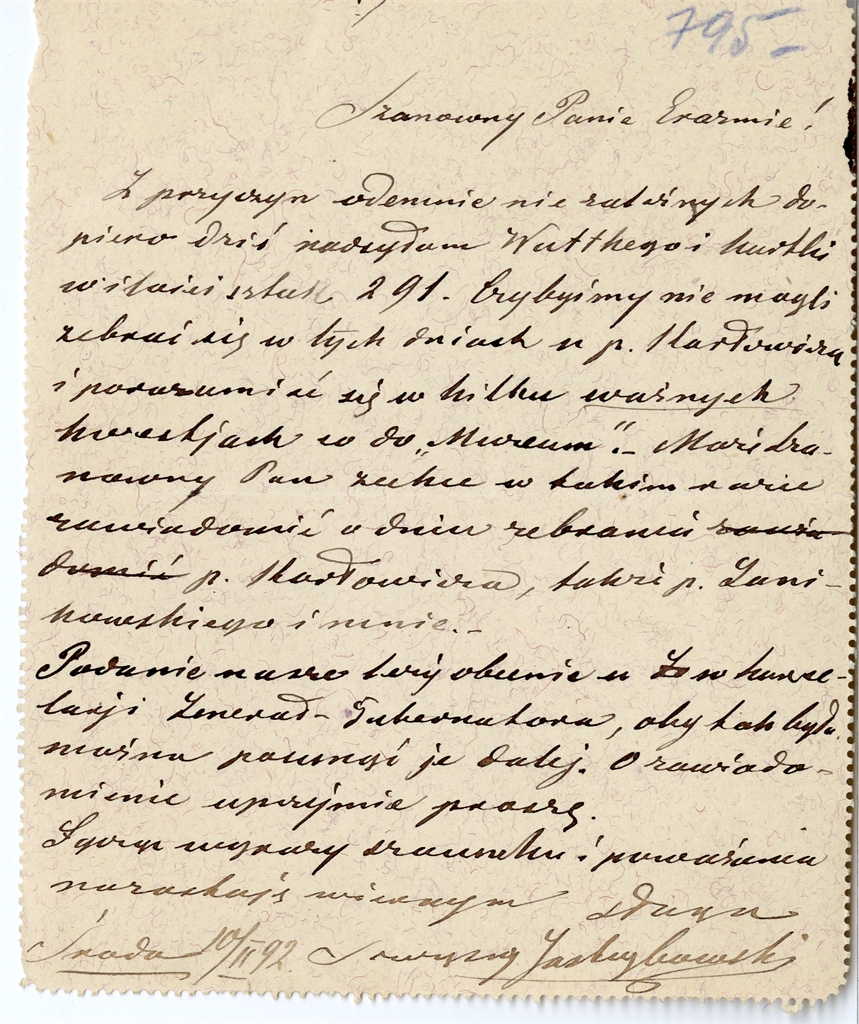 795-
Szanowny Panie Erazmie!
Z przyczyn odemnie nie zależnych do-
piero dziś nadsyłam Wutthego i kartki
w ilości sztuk 291. Czybyśmy nie mogli
zebrać się w tych dniach u p. Karłowicza
i porozumieć się w kilku ważnych
kwestjach co do „Muzeum“.- Może Sza-
nowny Pan zechce w takim razie
zawiadomić o dniu zebrania zawia-
domić p. Karłowicza, także p. Zani-
kowskiego i mnie.-
Podanie nasze leży obecnie u w kance-
larji Generał-Gubernatora, oby tak było
można posunąć je dalej. O zawiado-
mienie uprzejmie proszę.
Łącząc wyrazy szacunku i poważania
pozostaję wiernym sługą
Środa 10/II 92 Seweryn Jastrzębowski